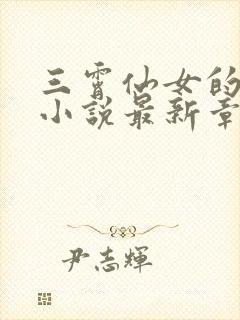 三霄仙女的
小说最新章
尹志輝